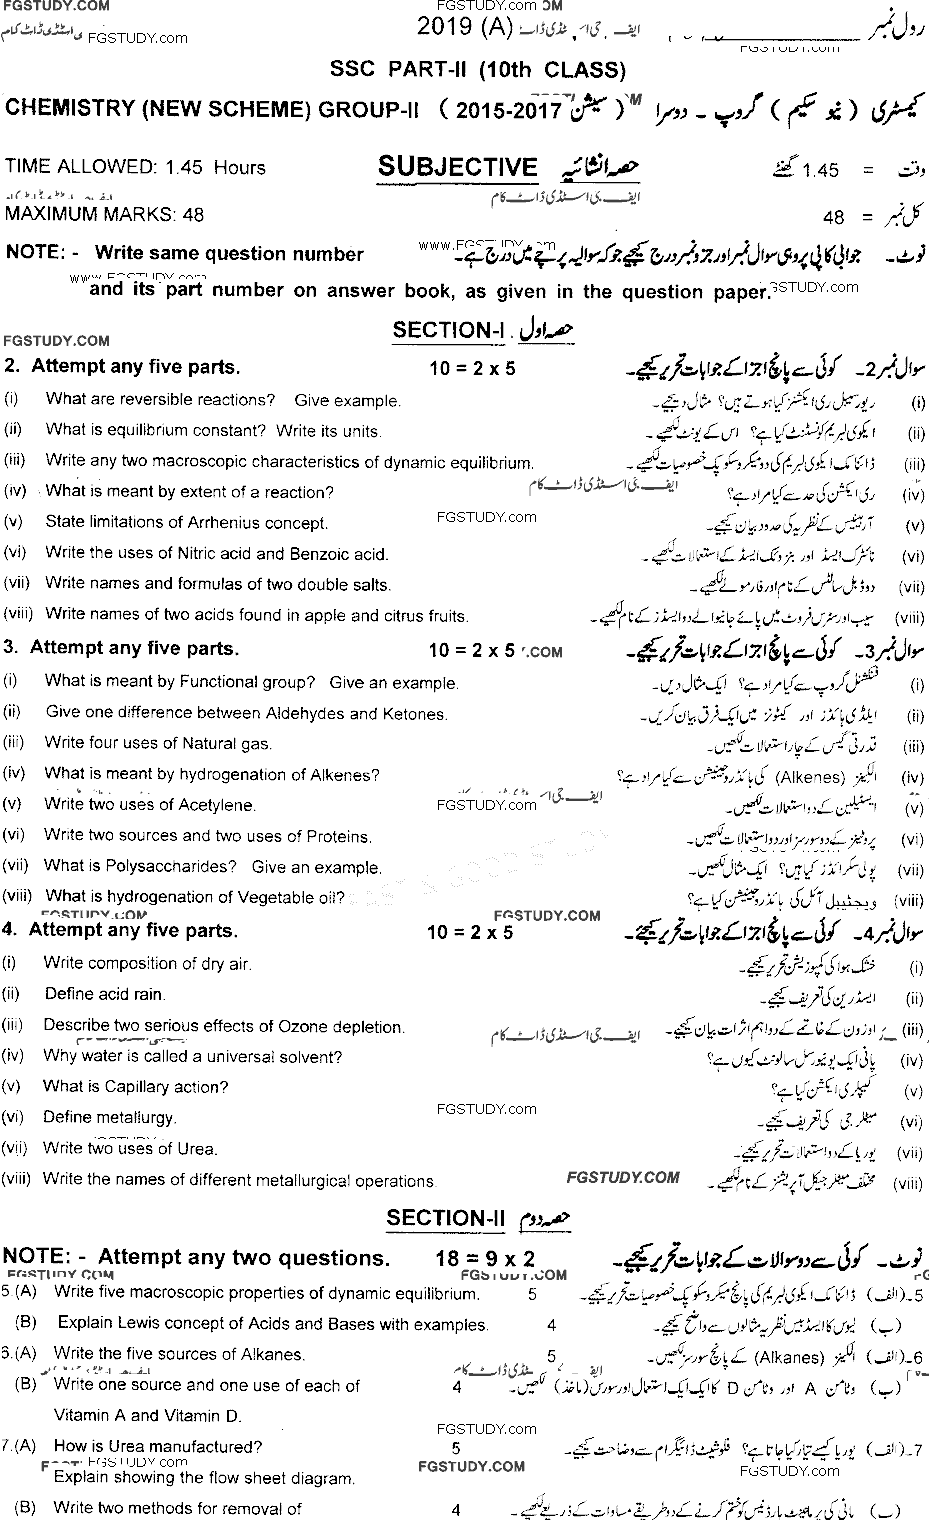 FGSTUDY.COM FGSTUDY.COM
FGSTUDY.com 2019 (A) ایف جی اسٹڈی ڈاٹ رول نمبر
FGSTUDY.com
SSC PART-II (10th CLASS)
CHEMISTRY (NEW SCHEME) GROUP-II ( 2015-2017 سیشن ) کیمسٹری ( نیو سکیم ) گروپ ۔ دوسرا
TIME ALLOWED: 1.45 Hours SUBJECTIVE حصہ انشائیہ وقت = 1.45 گھنٹے
ایف جی اسٹڈی ڈاٹ کام
MAXIMUM MARKS: 48 کل نمبر = 48
NOTE: - Write same question number www.FGSTUDY.com نوٹ۔ جوابی کاپی پر وہی سوال نمبر اور جزو نمبر درج کیجیے جو کہ سوالیہ پرچے میں درج ہے۔
www.FGSTUDY.com and its part number on answer book, as given in the question paper. FGSTUDY.com
SECTION-I حصہ اول
FGSTUDY.COM
2. Attempt any five parts. 10 = 2 x 5 سوال نمبر 2۔ کوئی سے پانچ اجزا کے جوابات تحریر کیجیے۔
(i) What are reversible reactions? Give example. (i) ریورسیبل ری ایکشنز کیا ہوتے ہیں؟ مثال دیجیے۔
(ii) What is equilibrium constant? Write its units. (ii) ایکوی لبریم کونسٹنٹ کیا ہے؟ اس کے یونٹ لکھیے۔
(iii) Write any two macroscopic characteristics of dynamic equilibrium. (iii) ڈائنامک ایکوی لبریم کی دو میکروسکوپک خصوصیات لکھیے۔
(iv) What is meant by extent of a reaction? ایف جی اسٹڈی ڈاٹ کام (iv) ری ایکشن کی حد سے کیا مراد ہے؟
(v) State limitations of Arrhenius concept. FGSTUDY.com (v) آرہینیس کے نظریہ کی حدود بیان کیجیے۔
(vi) Write the uses of Nitric acid and Benzoic acid. (vi) نائٹرک ایسڈ اور بنزوئک ایسڈ کے استعمالات لکھیے۔
(vii) Write names and formulas of two double salts. (vii) دو ڈبل سالٹس کے نام اور فارمولے لکھیے۔
(viii) Write names of two acids found in apple and citrus fruits. (viii) سیب اور سٹرس فروٹ میں پائے جانیوالے دو ایسڈز کے نام لکھیے۔
3. Attempt any five parts. 10 = 2 x 5 .COM سوال نمبر 3۔ کوئی سے پانچ اجزا کے جوابات تحریر کیجیے۔
(i) What is meant by Functional group? Give an example. (i) فنکشنل گروپ سے کیا مراد ہے؟ ایک مثال دیں۔
(ii) Give one difference between Aldehydes and Ketones. (ii) ایلڈی ہائڈز اور کیٹونز میں ایک فرق بیان کریں۔
(iii) Write four uses of Natural gas. (iii) قدرتی گیس کے چار استعمالات لکھیں۔
(iv) What is meant by hydrogenation of Alkenes? (iv) الکینز (Alkenes) کی ہائڈروجینیشن سے کیا مراد ہے؟
(v) Write two uses of Acetylene. FGSTUDY.com ایف جی اسٹڈی ڈاٹ کام (v) ایسٹیلین کے دو استعمالات لکھیں۔
(vi) Write two sources and two uses of Proteins. (vi) پروٹینز کے دو سورسز اور دو استعمالات لکھیں۔
(vii) What is Polysaccharides? Give an example. (vii) پولی سکرائڈز کیا ہیں؟ ایک مثال لکھیں۔
(viii) What is hydrogenation of Vegetable oil? (viii) ویجیٹیبل آئل کی ہائڈروجینیشن کیا ہے؟
FGSTUDY.COM FGSTUDY.COM
4. Attempt any five parts. 10 = 2 x 5 سوال نمبر 4۔ کوئی سے پانچ اجزا کے جوابات تحریر کیجئے۔
(i) Write composition of dry air. (i) خشک ہوا کی کمپوزیشن تحریر کیجیے۔
(ii) Define acid rain. (ii) ایسڈ رین کی تعریف کیجیے۔
(iii) Describe two serious effects of Ozone depletion. ایف جی اسٹڈی ڈاٹ کام (iii) اوزون کے خاتمے کے دو اہم اثرات بیان کیجیے۔
(iv) Why water is called a universal solvent? (iv) پانی ایک یونیورسل سالونٹ کیوں ہے؟
(v) What is Capillary action? (v) کیپلری ایکشن کیا ہے؟
(vi) Define metallurgy. FGSTUDY.com (vi) میٹلرجی کی تعریف کیجیے۔
(vii) Write two uses of Urea. (vii) یوریا کے دو استعمالات تحریر کیجیے۔
(viii) Write the names of different metallurgical operations. FGSTUDY.COM (viii) مختلف میٹلرجیکل آپریشنز کے نام لکھیے۔
SECTION-II حصہ دوم
NOTE: - Attempt any two questions. 18 = 9 x 2 نوٹ۔ کوئی سے دو سوالات کے جوابات تحریر کیجیے۔
FGSTUDY.COM FGSTUDY.COM FG
5.(A) Write five macroscopic properties of dynamic equilibrium. 5 5۔(الف) ڈائنامک ایکوی لبریم کی پانچ میکروسکوپک خصوصیات تحریر کیجیے۔
(B) Explain Lewis concept of Acids and Bases with examples. 4 (ب) لیوس کا ایسڈ بیس نظریہ مثالوں سے واضح کیجیے۔
6.(A) Write the five sources of Alkanes. 5 6۔(الف) الکینز (Alkanes) کے پانچ سورسز لکھیں۔
(B) Write one source and one use of each of 4 (ب) وٹامن A اور وٹامن D کا ایک ایک استعمال اور سورس (ماخذ) لکھیں۔
Vitamin A and Vitamin D.
FGSTUDY.com
7.(A) How is Urea manufactured? 5 7۔(الف) یوریا کیسے تیار کیا جاتا ہے؟ فلو شیٹ ڈائیگرام سے وضاحت کیجیے۔
FGSTUDY.com FGSTUDY.COM FGSTUDY.com
Explain showing the flow sheet diagram.
(B) Write two methods for removal of 4 (ب) پانی کی پرمانینٹ ہارڈنیس کو ختم کرنے کے دو طریقے مساوات کے ذریعے لکھیے۔